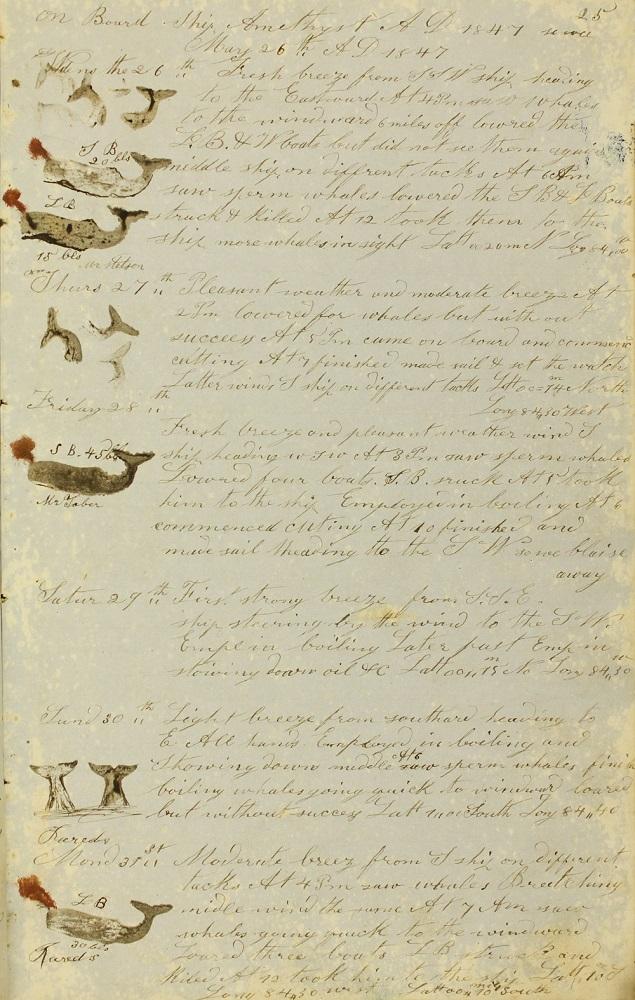 25
on Board Ship Amethyst A D 1847
May 26 th A D 1847
the 26 th Fresh breeze from SSW ship heading
to the Eastward At 4 Pm saw whales
to the windward 6 miles off lowered the
L. B. & W boats but did not see them again
S B
20 bls
middle ship on different tacks At 6 Am
saw sperm whales lowered the S B & L Boats
L B
struck & killed At 12 took them to the
ship more whales in sight Latt 20m N Long 84
15 bls
Mr Stetson
Thurs 27 th Pleasant weather and moderate breeze At
2 Pm lowered for whales but with out
success At 5 Pm came on board and commenc
cutting At 7 finished made sail & set the watch
Latter winds S ship on different tacks Latt 00=14 North
Long 84,,50 West
Friday 28 th
Fresh breeze and pleasant weather wind S
S B. 45 bls
ship heading W S W At 3 Pm saw sperm whales
Lowered four boats. S. B. struck At 5 took
him to the ship Employed in boiling At 6
Mr Taber
commenced cuting At 10 finished and
made sail heading to the S W so we blaise
away
Satur 29 th First strong breeze from S. S. E.
ship steering by the wind to the S W.
Emp in boiling Later part Emp in
stowing down oil &c Latt 00,,15 No Long 84,,30
Sund 30 th Light breeze from southard heading to
E All hands Employed in boiling and
Showing down middle At 6 saw sperm whales finish
boiling whales going quick to windward loared
but without success Latt South Long 84,,40
Kareds
Mond 31 st Moderate breez from S ship on different
tacks At 4 Pm saw whales Breetching
L B
middle wind the same At 7 Am saw
whales going quick to the windward
30 bls
Kareds
Loared three boats L B struck and
Kiled At 12 took him to the ship Latt 10 S
Long 84,,30 west Latt 00,,10 South